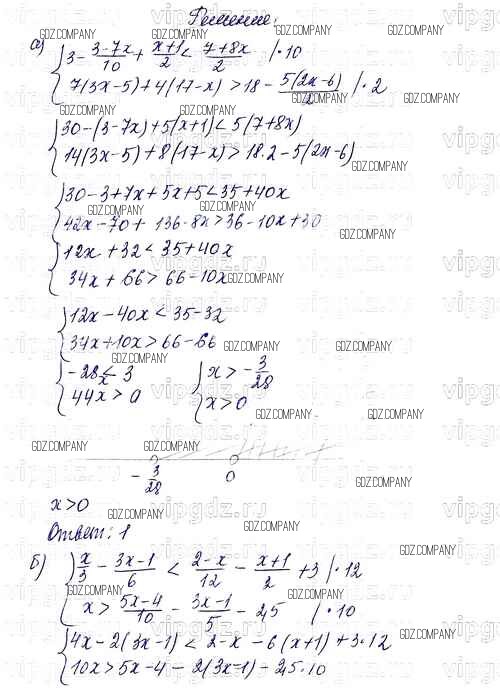 Решение.
а) { 3 - (3-7x)/10 + (x+1)/2 < (7+8x)/2 /·10
7(3x-5)+4(17-x) > 18 - 5(2x-6)/2 /·2
{ 30-(3-7x)+5(x+1)<5(7+8x)
14(3x-5)+8(17-x)>18·2-5(2x-6)
{ 30-3+7x+5x+5<35+40x
42x-70+136-8x>36-10x+30
{ 12x+32<35+40x
34x+66>66-10x
{ 12x-40x<35-32
34x+10x>66-66
{ -28x<3 { x>-3/28
44x>0 x>0
-3/28 0
x>0
Ответ: 1
б) { x/3 - (3x-1)/6 < (2-x)/12 - (x+1)/2 + 3 /·12
x > (5x-4)/10 - (3x-1)/5 - 2,5 /·10
{ 4x-2(3x-1)<2-x-6(x+1)+3·12
10x>5x-4-2(3x-1)-2,5·10
GDZ.COMPANY
vipgdz.ru